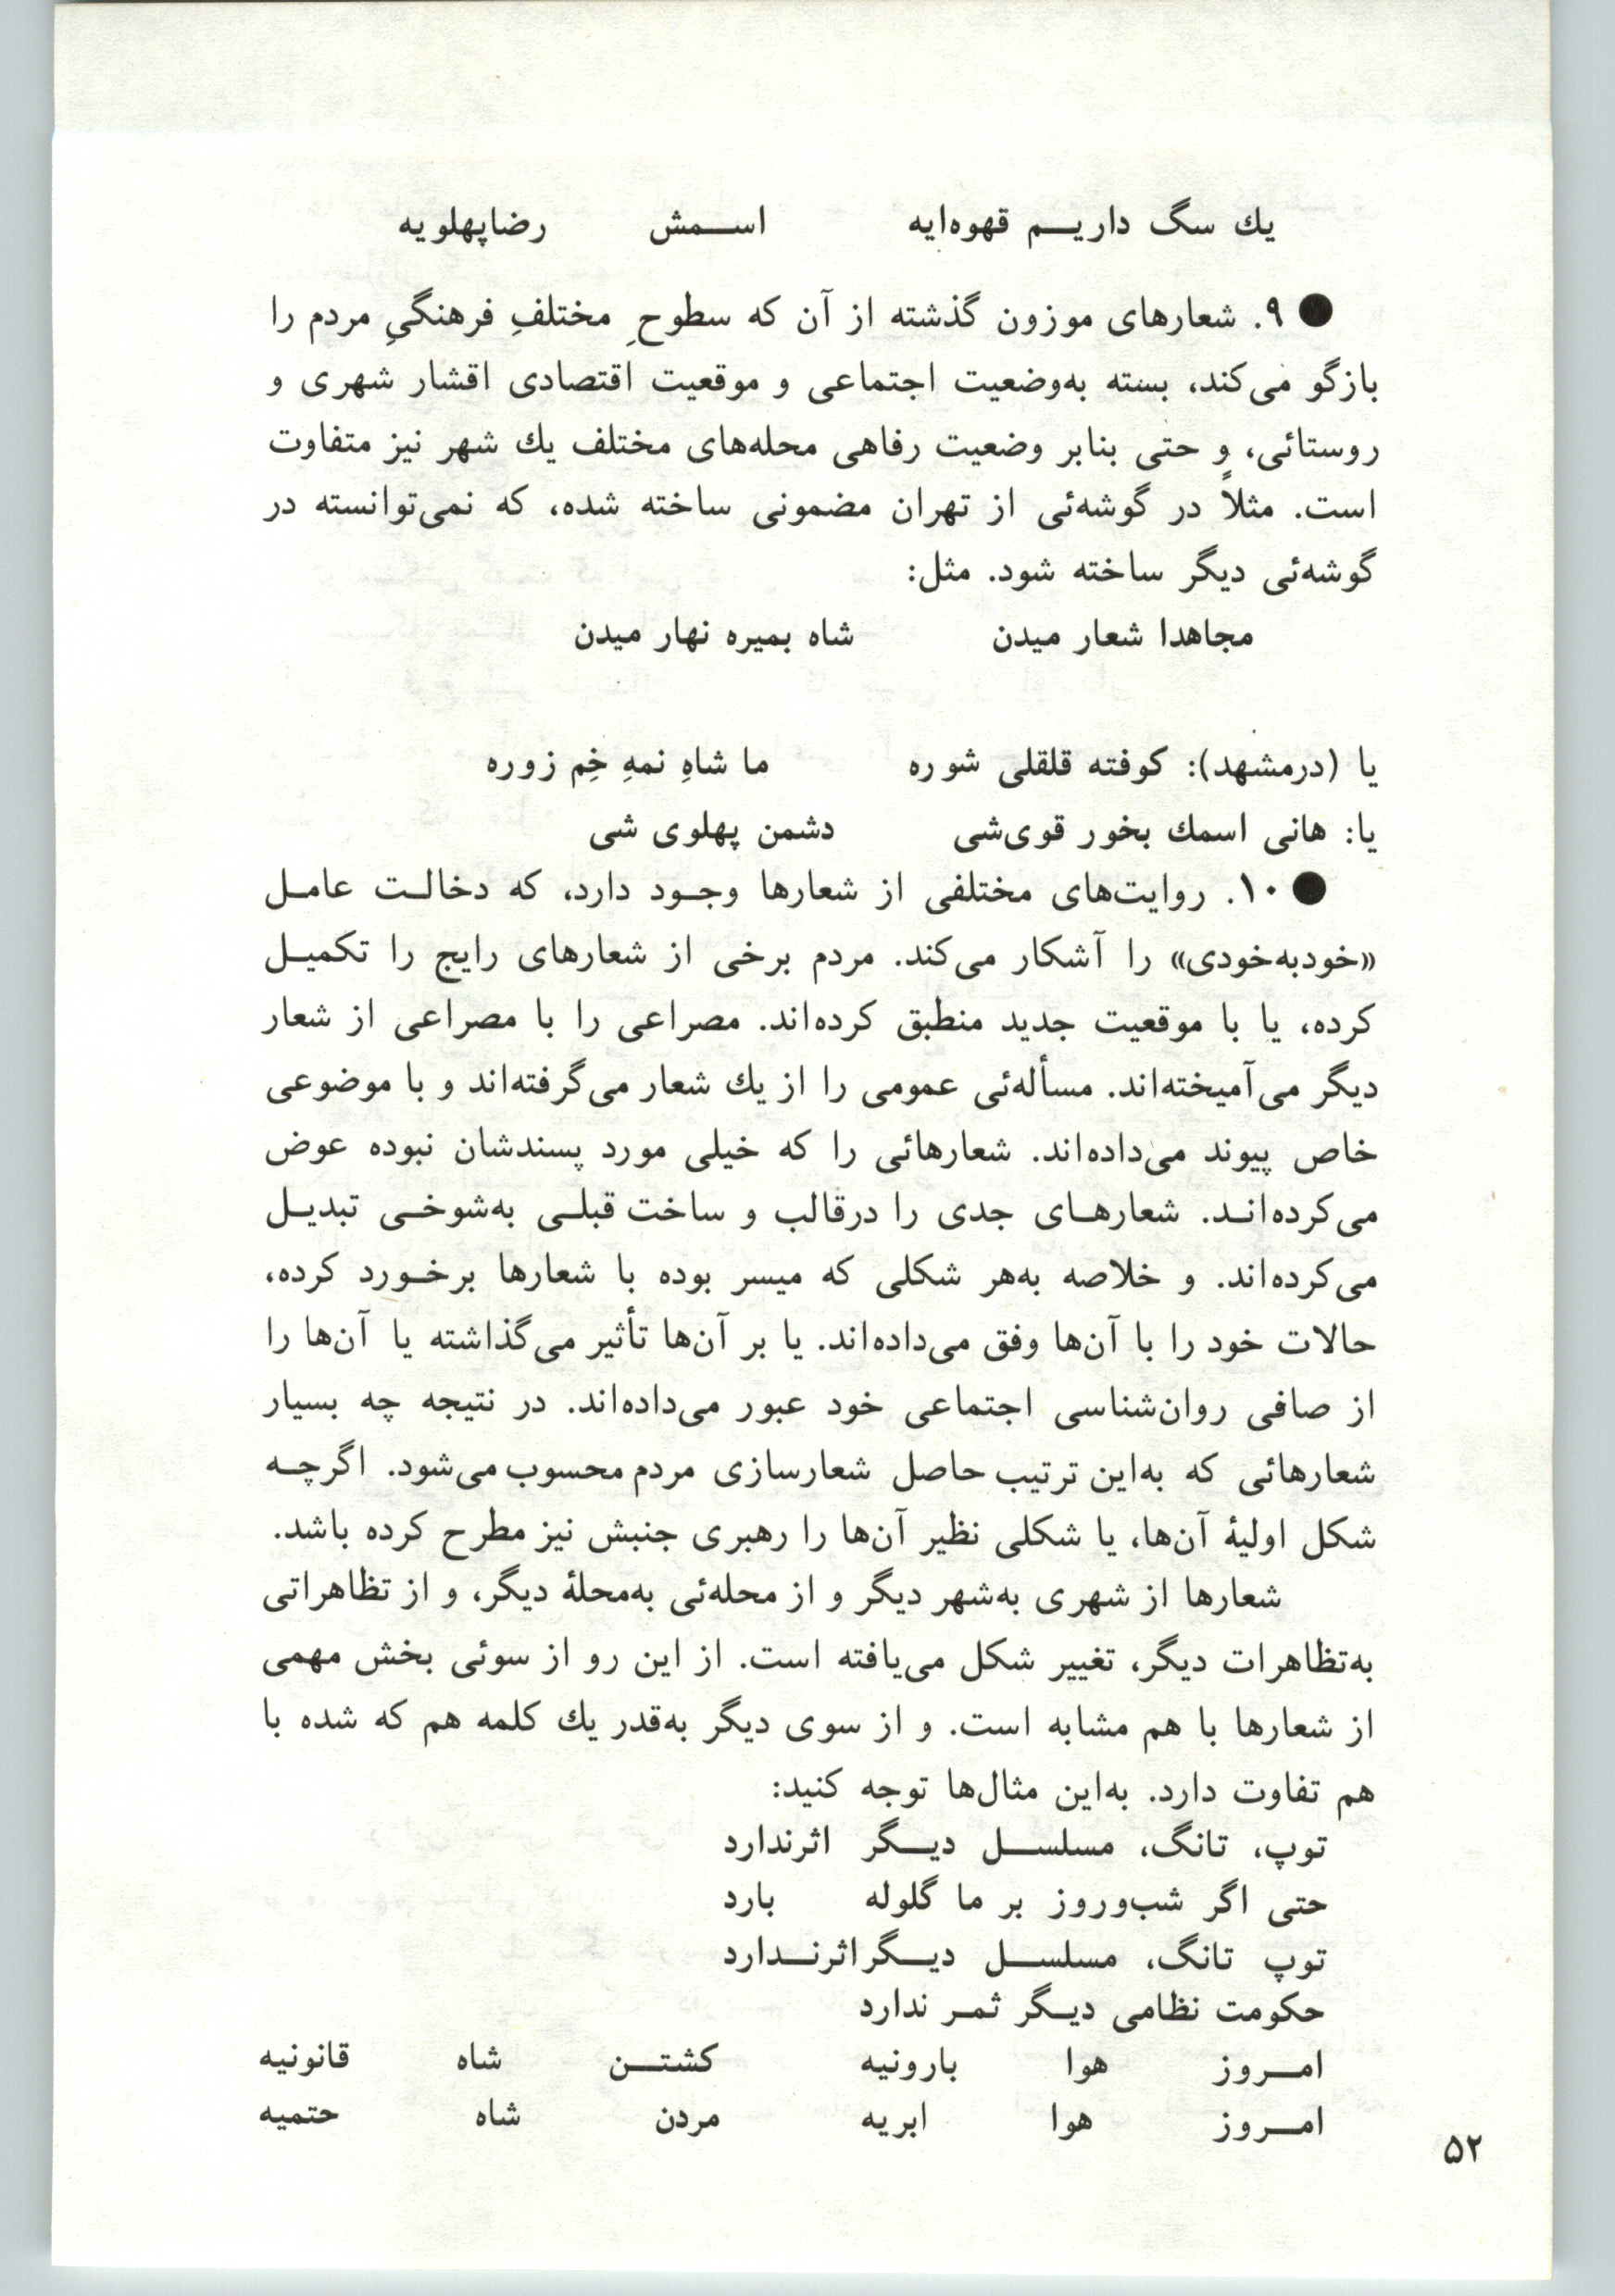 یك سگ داریم قهوه‌ایه اسمش رضاپهلویه
● ۹. شعارهای موزون گذشته از آن که سطوحِ مختلفِ فرهنگیِ مردم را
بازگو می‌کند، بسته به‌وضعیت اجتماعی و موقعیت اقتصادی اقشار شهری و
روستائی، و حتی بنابر وضعیت رفاهی محله‌های مختلف یك شهر نیز متفاوت
است. مثلاً در گوشه‌ئی از تهران مضمونی ساخته شده، که نمی‌توانسته در
گوشه‌ئی دیگر ساخته شود. مثل:
مجاهدا شعار میدن شاه بمیره نهار میدن
یا (درمشهد): کوفته قلقلی شوره ما شاهِ نمهِ خِم زوره
یا: هانی اسمك بخور قوی‌شی دشمن پهلوی شی
● ۱۰. روایت‌های مختلفی از شعارها وجود دارد، که دخالت عامل
«خودبه‌خودی» را آشکار می‌کند. مردم برخی از شعارهای رایج را تکمیل
کرده، یا با موقعیت جدید منطبق کرده‌اند. مصراعی را با مصراعی از شعار
دیگر می‌آمیخته‌اند. مسأله‌ئی عمومی را از یك شعار می‌گرفته‌اند و با موضوعی
خاص پیوند می‌داده‌اند. شعارهائی را که خیلی مورد پسندشان نبوده عوض
می‌کرده‌اند. شعارهای جدی را درقالب و ساخت قبلی به‌شوخی تبدیل
می‌کرده‌اند. و خلاصه به‌هر شکلی که میسر بوده با شعارها برخورد کرده،
حالات خود را با آن‌ها وفق می‌داده‌اند. یا بر آن‌ها تأثیر می‌گذاشته یا آن‌ها را
از صافی روان‌شناسی اجتماعی خود عبور می‌داده‌اند. در نتیجه چه بسیار
شعارهائی که به‌این ترتیب حاصل شعارسازی مردم محسوب می‌شود. اگرچه
شکل اولیهٔ آن‌ها، یا شکلی نظیر آن‌ها را رهبری جنبش نیز مطرح کرده باشد.
شعارها از شهری به‌شهر دیگر و از محله‌ئی به‌محلهٔ دیگر، و از تظاهراتی
به‌تظاهرات دیگر، تغییر شکل می‌یافته است. از این رو از سوئی بخش مهمی
از شعارها با هم مشابه است. و از سوی دیگر به‌قدر یك کلمه هم که شده با
هم تفاوت دارد. به‌این مثال‌ها توجه کنید:
توپ، تانگ، مسلسل دیگر اثرندارد
حتی اگر شب‌وروز بر ما گلوله بارد
توپ تانگ، مسلسل دیگراثرندارد
حکومت نظامی دیگر ثمر ندارد
امروز هوا بارونیه کشتن شاه قانونیه
امروز هوا ابریه مردن شاه حتمیه
۵۲